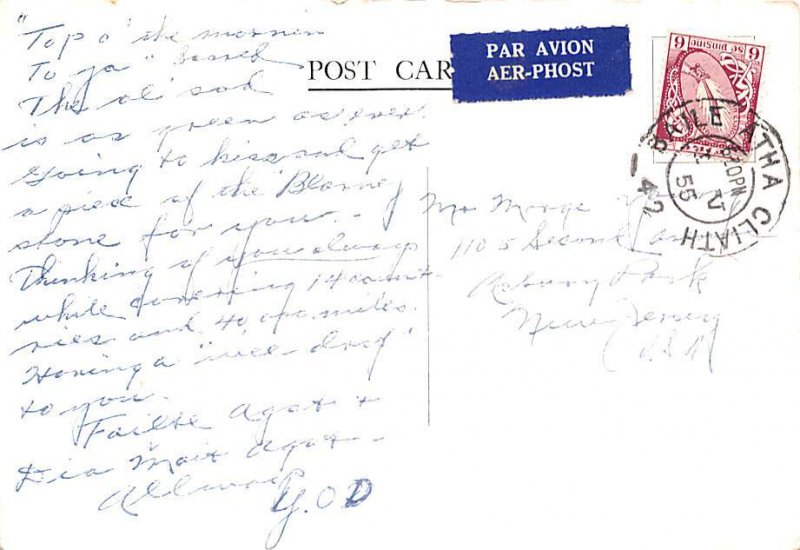 "Top o' the mornin
To ya"
The ol' sod
is as green as ever.
Going to kiss and get
a piece of the Blarney
stone for you. -
Thinking of you always
while covering 14 count-
ries and 40,000 miles.
Having a "wee drop"
to you.
Failte Agat +
Dia Mait Agat -
G.O.D
POST CAR
PAR AVION
AER-PHOST
9 9
sé pingine
BAILE ATHA CLIATH
30PM
V
55
42
Mr
1105 Second
Asbury Park
New Jersey
USA